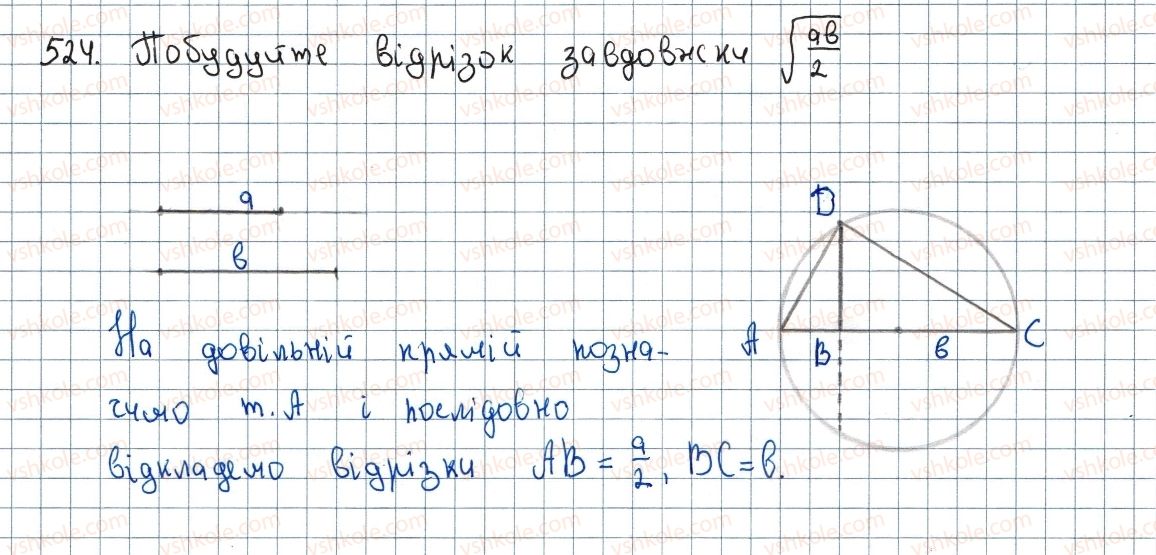 524. Побудуйте відрізок завдовжки √(ав/2)
а
в
D
A
B
в
C
На довільній прямій позна-
чимо т. А і послідовно
відкладемо відрізки AB = а/2, BC = в.
vshkole.com